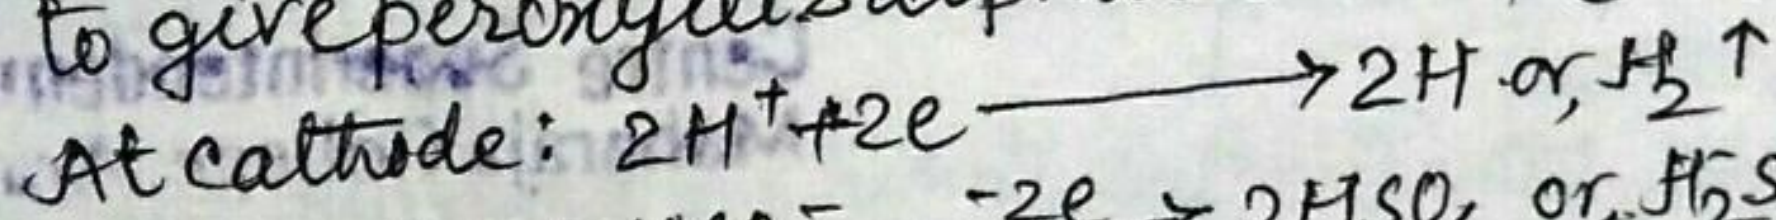 to give
At cathode: 2H⁺+2e ⟶ 2H or, H₂↑
-2e → 2HSO₄ or, H₂S